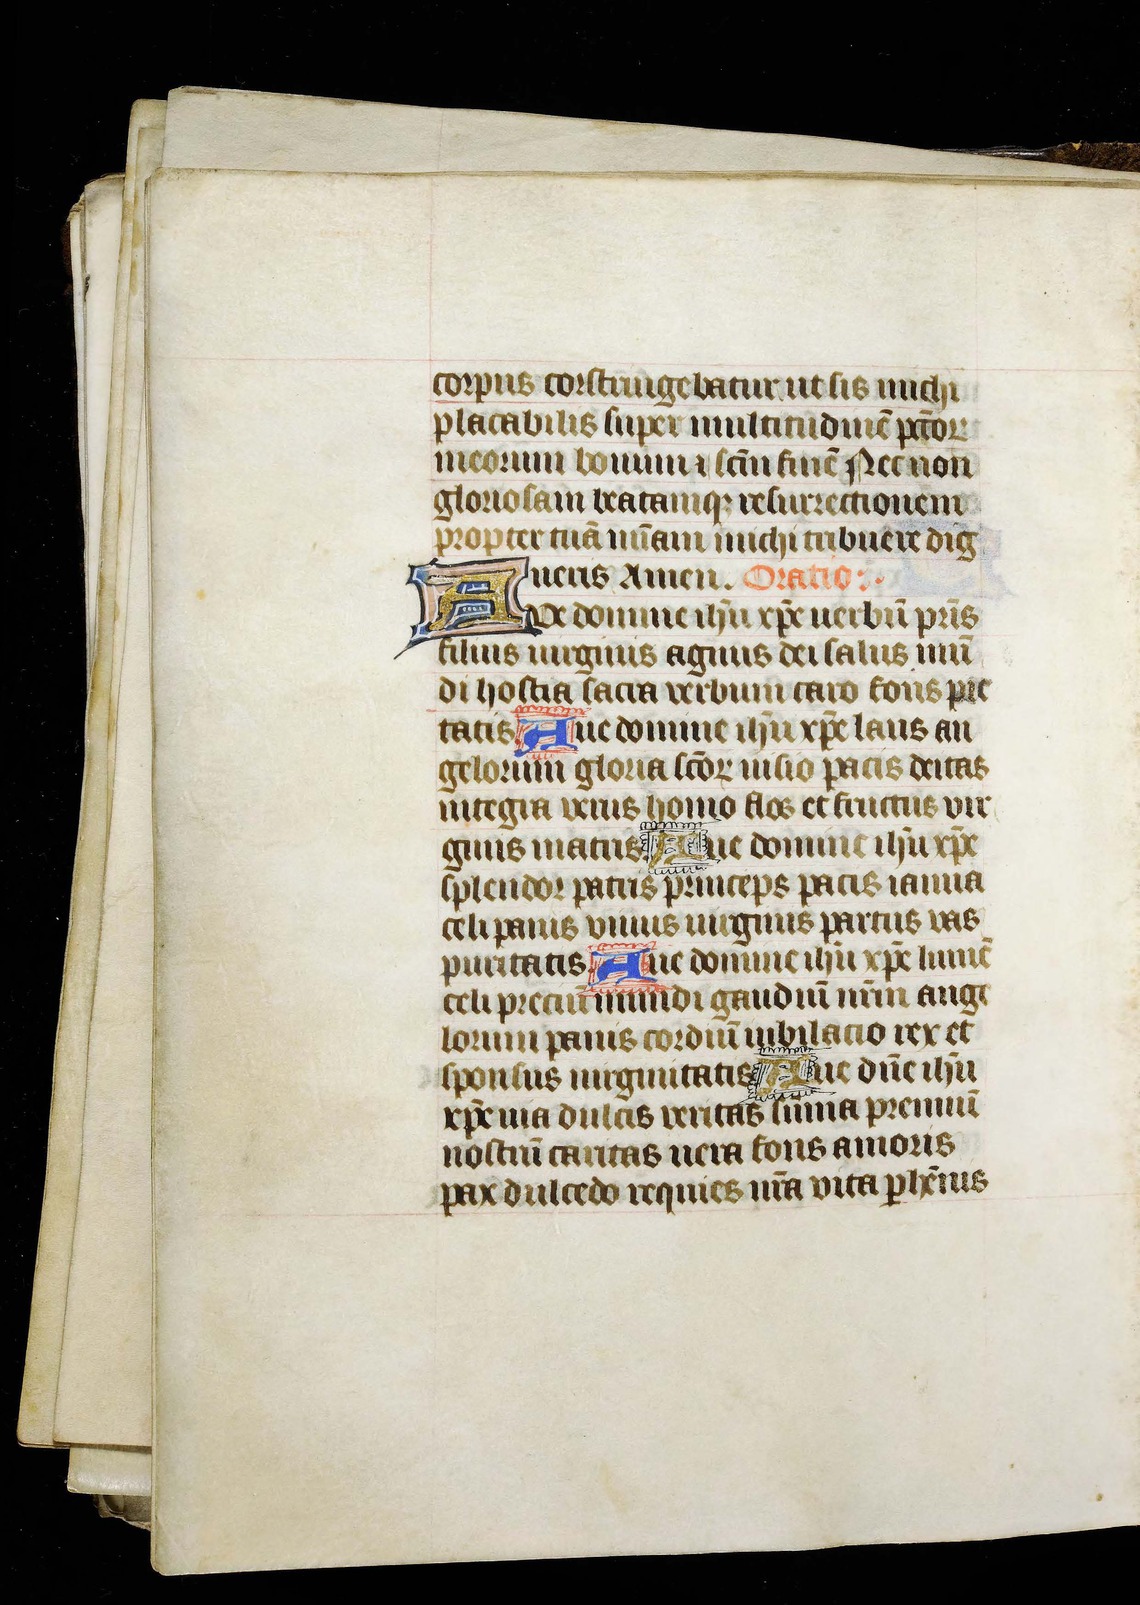 corpus corstringebatur ut sis michi
placabilis super multitudinē pctōꝝ
meorum bonum ⁊ scm̄ finē Nec non
gloriosam beatamqꝫ resurrectionem
propter tuā mīam michi tribuere dig
neris Amen. Oratio:.
Ave domine ihū xp̄e uerbū pris̄
filius uirginis agnus dei salus mū
di hostia sacra verbum caro fons pie
tatis Aue domine ihū xp̄e laus an
gelorum gloria scōꝝ uisio pacis deitas
integra verus homo flos et fructus vir
ginis matris Aue domine ihū xp̄e
splendor patris princeps pacis ianua
celi panis viuus uirginis partus vas
puritatis Aue domine ihū xp̄e lumē
celi preciū mundi gaudiū nr̄m ange
lorum panis cordiū iubilacio rex et
sponsus uirginitatis Aue dn̄e ihū
xp̄e uia dulcis veritas sūma premiū
nostrū caritas uera fons amoris
pax dulcedo requies nr̄a vita phēnis